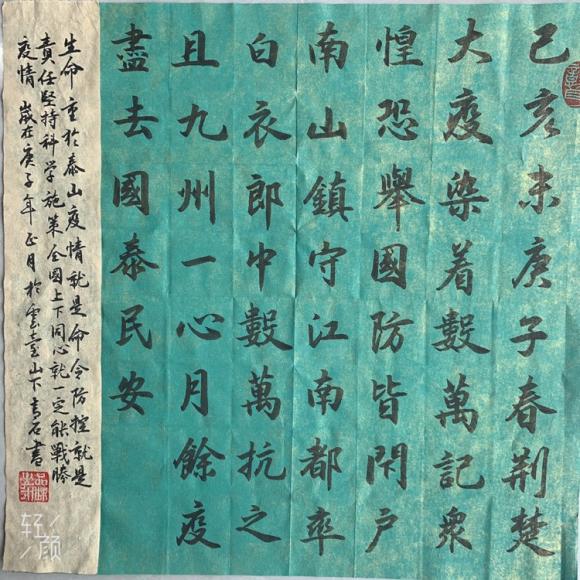 己亥末庚子春荆楚
大疫染着數萬記衆
惶恐舉國防皆閉户
南山鎮守江南都率
白衣郎中數萬抗之
且九州一心月餘疫
盡去國泰民安
生命重於泰山疫情就是命令防控就是
責任堅持科学施策全國上下同心就一定能戰勝
疫情 歲在庚子年正月於雲臺山下青石書
轻颜